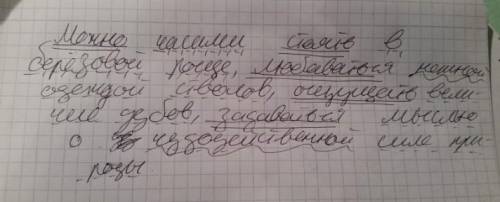 Можно часами стоять в
берёзовой роще, любоваться нежной
одеждой стволов, ощущать вели-
чие дубов, задаваться мыслью
о чудодейственной силе при-
роды